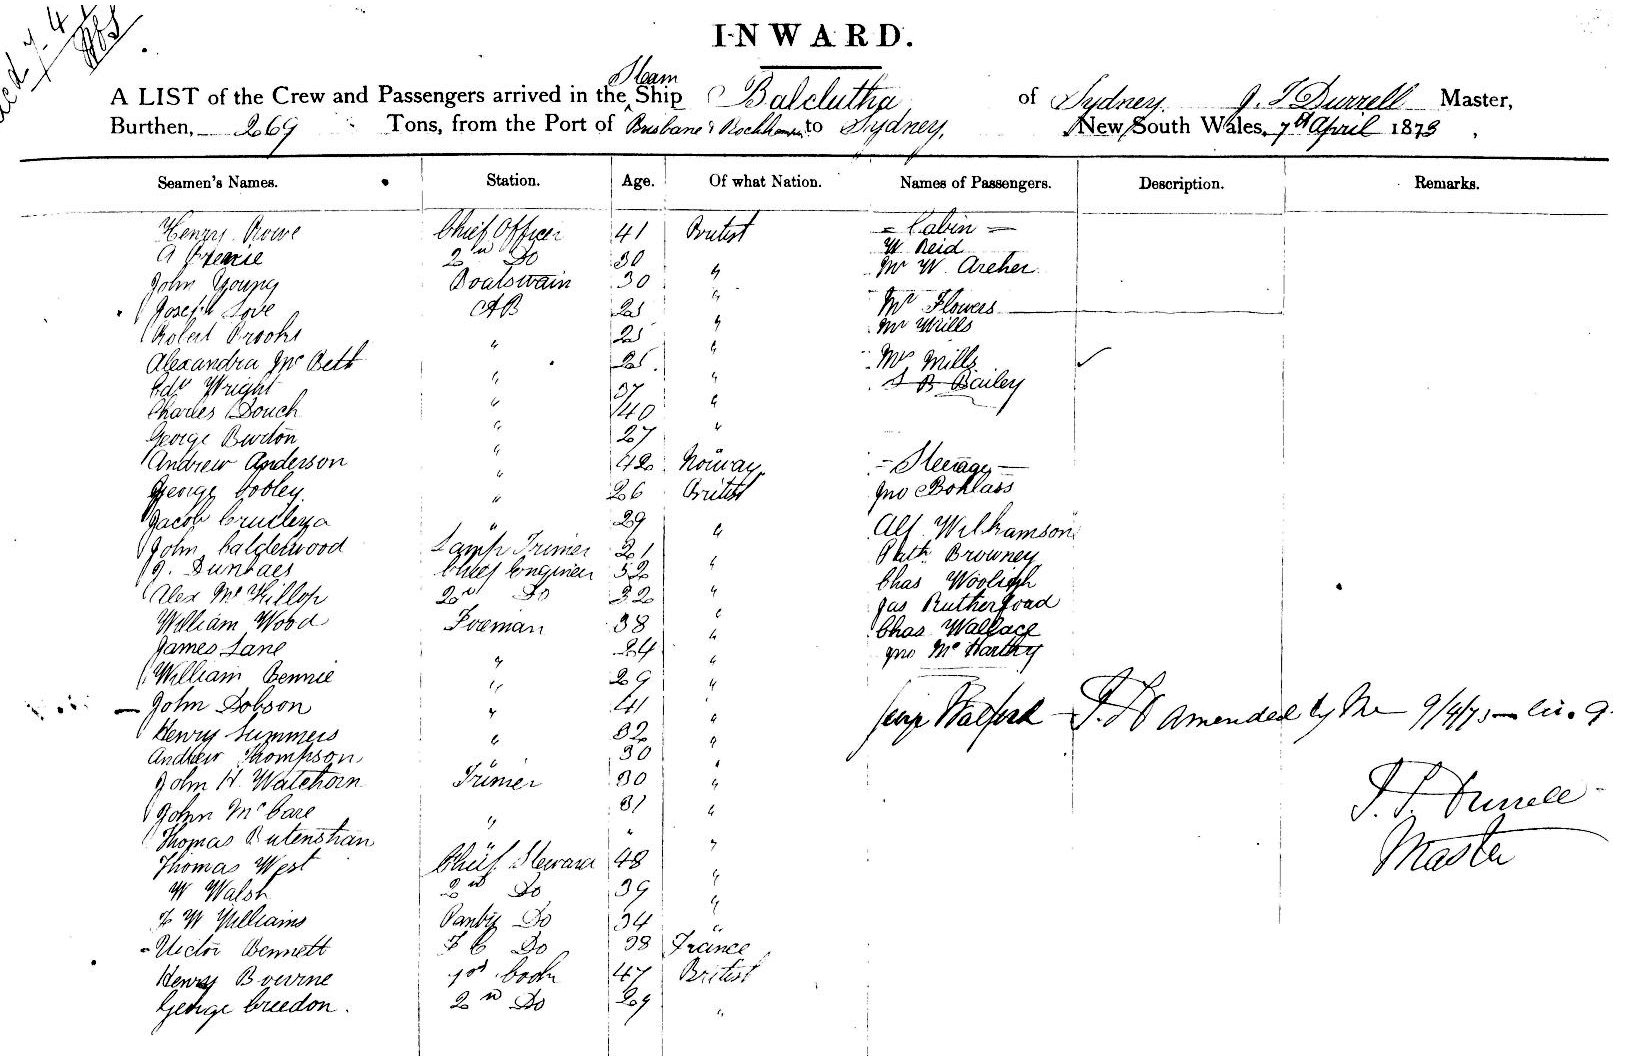 INWARD.
A LIST of the Crew and Passengers arrived in the Steam Ship Balclutha of Sydney J. T Durrell Master,
Burthen, 269 Tons, from the Port of Brisbane & Rockhampton to Sydney, New South Wales, 7th April 1873
Seamen's Names. Station. Age. Of what Nation. Names of Passengers. Description. Remarks.
Henry Rowe Chief Officer 41 British = Cabin =
A 2nd Do 30 " W. Reid
John Young Boatswain 30 " Mr W. Archer
Joseph Love AB 25 " Flowers
Robert Brooks " 25 " Mr Mills
Alexandra McBeth " 25 " Mrs Mills ✓
Edw Wright " 37 " S B Bailey
Charles Douch " 40 "
George Burton " 27
Andrew Anderson " 42 Norway = Steerage =
George Cobley " 26 British Jno Bohlass
Jacob " 29 " Alf Williamson
John Calderwood Lamp Trimer 21 " Patk Browney
J. Chief Engineer 52 " Chas Wooligh
Alex McKillop 2nd Do 32 " Jas Rutherfoad
William Wood Foeman 38 " Chas Wallace
James Lane " 24 " Jno McCarthy
William Bennie " 29 "
John Dobson " 41 " Walford - amended by Me 9/4/73
Henry Summers " 32 "
Andrew Thompson " 30 "
John H. Watehorn Trimer 30 " J. T. Durrell
John McCare " 31 " Master
Thomas Butenshan " " "
Thomas West Chief Steward 48 "
W Walsh 2nd Do 39 "
F W Williams Pantry Do 34 "
Victor Bennett F C Do 38 France
Henry Bourne 1st Cook 47 British
George Creedon. 2nd Do 29 "